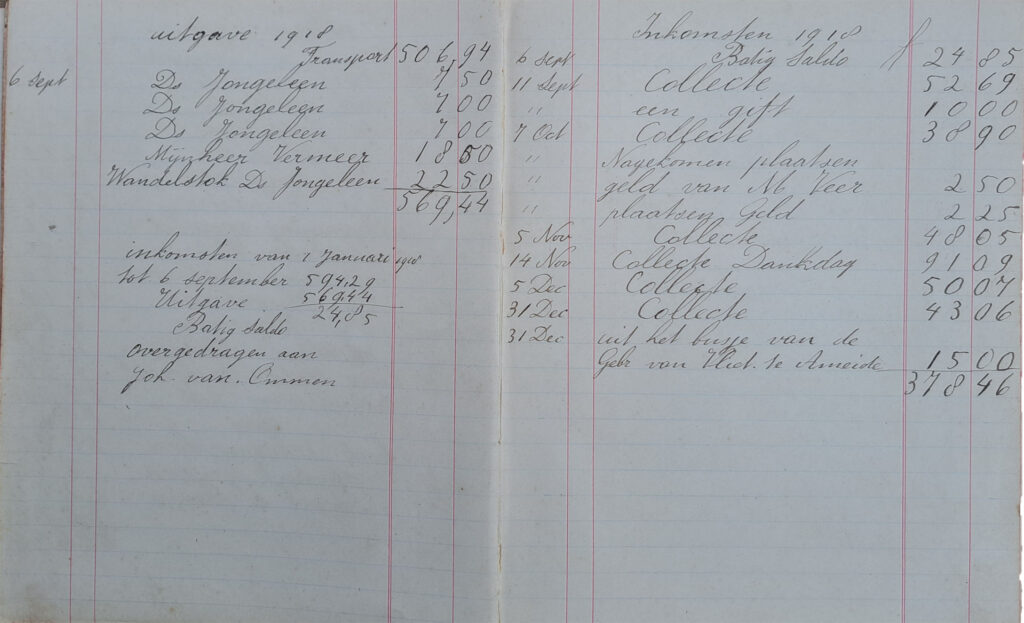 uitgave 1918
Transport 506,94
6 Sept Ds Jongeleen 7 50
Ds Jongeleen 7 00
Ds Jongeleen 7 00
Mijnheer Vermeer 18 50
Wandelstok Ds Jongeleen 22 50
569,44
inkomsten van 1 Januari 1918
tot 6 september 594,29
Uitgave 569,44
24,85
Batig Saldo
overgedragen aan
Joh. van. Ommen
Inkomsten 1918
6 sept Batig Saldo f 24 85
11 Sept Collecte 52 69
" een gift 10 00
7 Oct Collecte 38 90
" Nagekomen plaatsen
" geld van M Veer 2 50
" plaatsen Geld 2 25
5 Nov Collecte 48 05
14 Nov Collecte Dankdag 91 09
5 Dec Collecte 50 07
31 Dec Collecte 43 06
31 Dec uit het busje van de
Gebr van Vliet. te Ameide 15 00
378 46